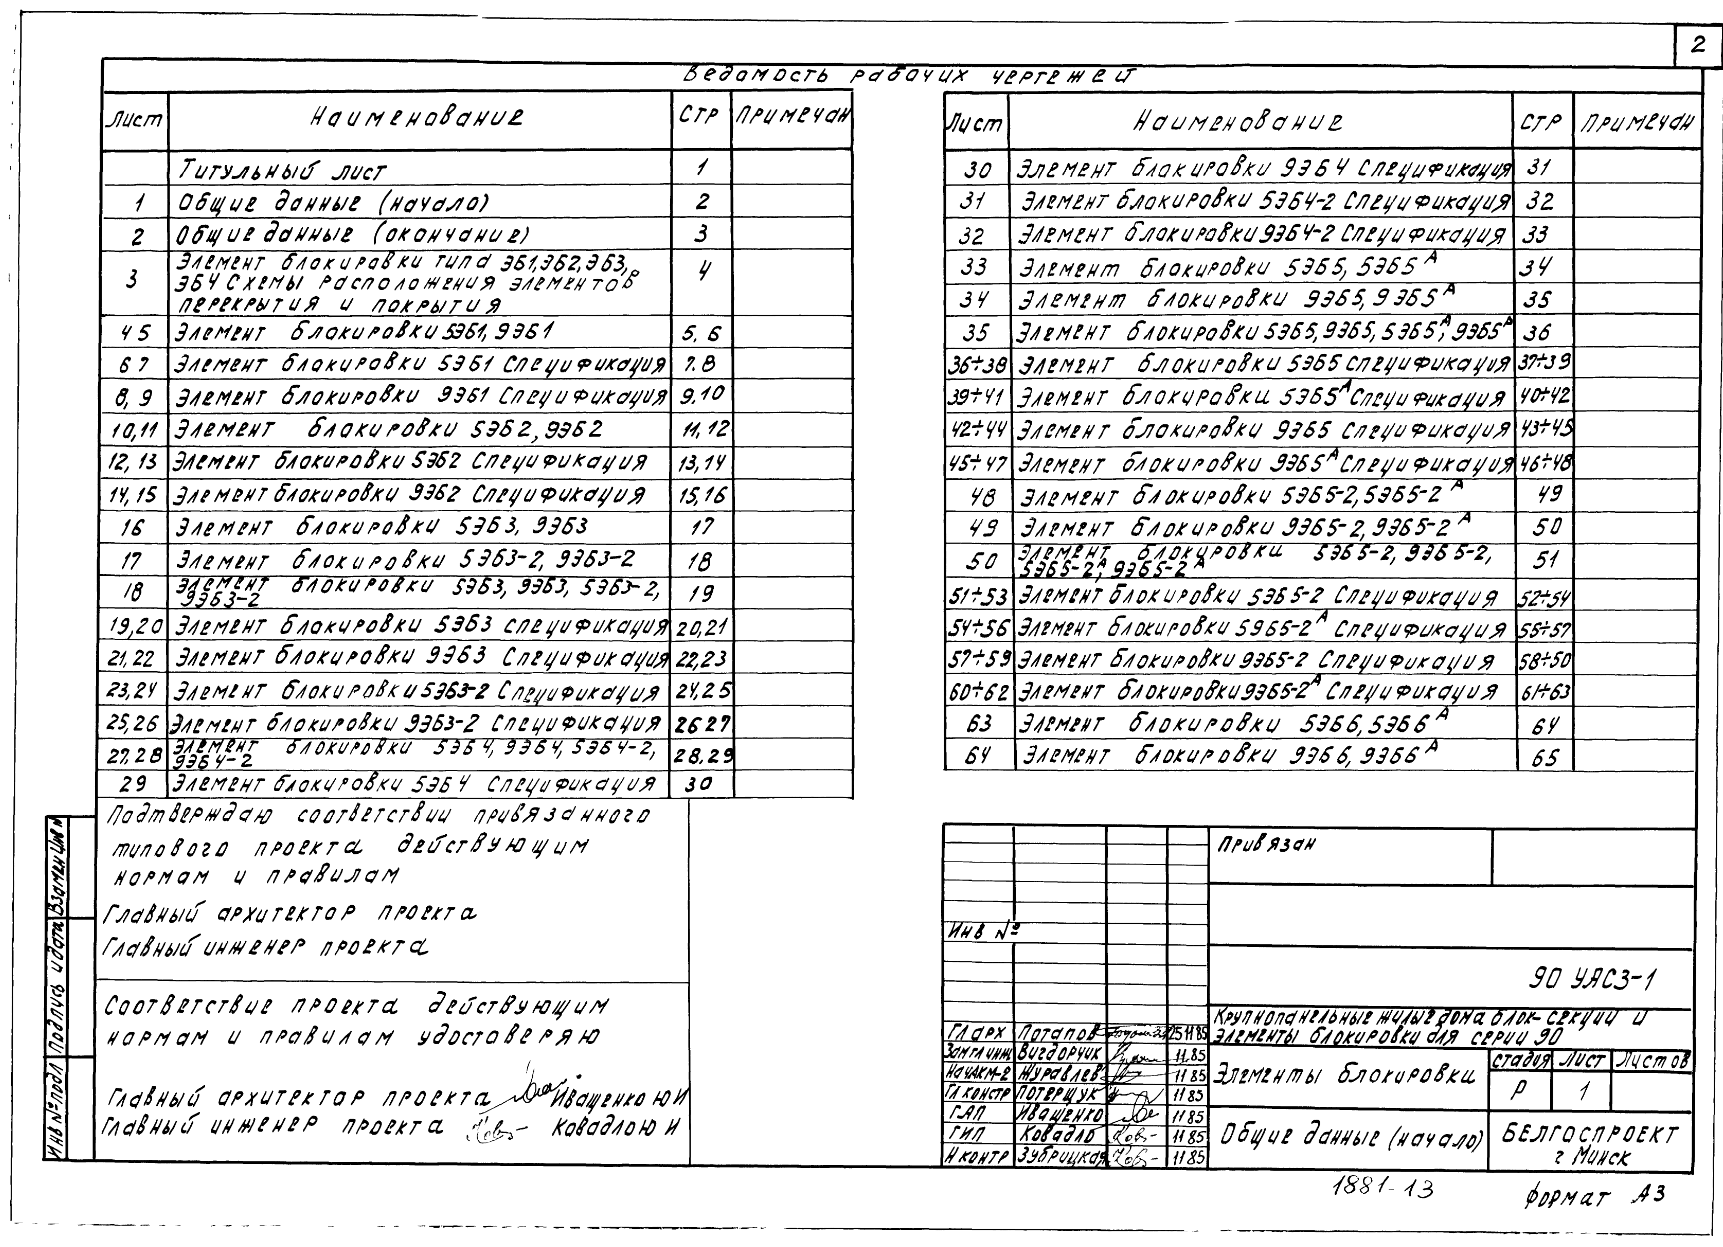 2
Ведомость рабочих чертежей
Лист Наименование Стр Примечан
Титульный лист 1
1 Общие данные (начало) 2
2 Общие данные (окончание) 3
3 Элемент блокировки типа ЭБ1,ЭБ2,ЭБ3, 4
ЭБ4 Схемы расположения элементов
перекрытия и покрытия
4 5 Элемент блокировки 5ЭБ1, 9ЭБ1 5, 6
6 7 Элемент блокировки 5ЭБ1 Спецификация 7.8
8, 9 Элемент блокировки 9ЭБ1 Спецификация 9.10
10,11 Элемент блокировки 5ЭБ2, 9ЭБ2 11, 12
12, 13 Элемент блокировки 5ЭБ2 Спецификация 13,14
14, 15 Элемент блокировки 9ЭБ2 Спецификация 15,16
16 Элемент блокировки 5ЭБ3, 9ЭБ3 17
17 Элемент блокировки 5ЭБ3-2, 9ЭБ3-2 18
18 Элемент блокировки 5ЭБ3, 9ЭБ3, 5ЭБ3-2, 19
9ЭБ3-2
19,20 Элемент блокировки 5ЭБ3 спецификация 20,21
21,22 Элемент блокировки 9ЭБ3 Спецификация 22,23
23,24 Элемент блокировки 5ЭБ3-2 Спецификация 24,25
25,26 Элемент блокировки 9ЭБ3-2 Спецификация 26 27
27,28 Элемент блокировки 5ЭБ4, 9ЭБ4, 5ЭБ4-2, 28,29
9ЭБ4-2
29 Элемент блокировки 5ЭБ4 Спецификация 30
Лист Наименование Стр Примечан
30 Элемент блокировки 9ЭБ4 Спецификация 31
31 Элемент блокировки 5ЭБ4-2 Спецификация 32
32 Элемент блокировки 9ЭБ4-2 Спецификация 33
33 Элемент блокировки 5ЭБ5, 5ЭБ5 А 34
34 Элемент блокировки 9ЭБ5, 9ЭБ5 А 35
35 Элемент блокировки 5ЭБ5, 9ЭБ5, 5ЭБ5 А, 9ЭБ5 А 36
36÷38 Элемент блокировки 5ЭБ5 спецификация 37÷39
39÷41 Элемент блокировки 5ЭБ5 А Спецификация 40÷42
42÷44 Элемент блокировки 9ЭБ5 Спецификация 43÷45
45÷47 Элемент блокировки 9ЭБ5 А Спецификация 46÷48
48 Элемент блокировки 5ЭБ5-2, 5ЭБ5-2 А 49
49 Элемент блокировки 9ЭБ5-2, 9ЭБ5-2 А 50
50 Элемент блокировки 5ЭБ5-2, 9ЭБ5-2, 51
5ЭБ5-2 А, 9ЭБ5-2 А
51÷53 Элемент блокировки 5ЭБ5-2 Спецификация 52÷54
54÷56 Элемент блокировки 5ЭБ5-2 А Спецификация 55÷57
57÷59 Элемент блокировки 9ЭБ5-2 Спецификация 58÷50
60÷62 Элемент блокировки 9ЭБ5-2 А Спецификация 61÷63
63 Элемент блокировки 5ЭБ6, 5ЭБ6 А 64
64 Элемент блокировки 9ЭБ6, 9ЭБ6 А 65
Подтверждаю соответствии привязанного
типового проекта действующим
нормам и правилам
Главный архитектор проекта
Главный инженер проекта
Соответствие проекта действующим
нормам и правилам удостоверяю
Главный архитектор проекта Иващенко Ю И
Главный инженер проекта Ковадло Ю И
Инв № подл Подпись и дата Взамен Инв №
Привязан
Инв №
90 УАСЗ-1
Крупнопанельные жилые дома блок-секции и
элементы блокировки для серии 90
Гл арх Потапов 25 11 85
Зам гл инж Вигдорчик 11.85
Нач АКМ-2 Журавлев 11 85
Гл констр Потерщук 11 85
ГАП Иващенко 11 85
ГИП Ковадло 11 85
Н контр Зубрицкая 11 85
Элементы блокировки
стадия Лист Листов
Р 1
Общие данные (начало)
БЕЛГОСПРОЕКТ
г Минск
1881-13
Формат А3